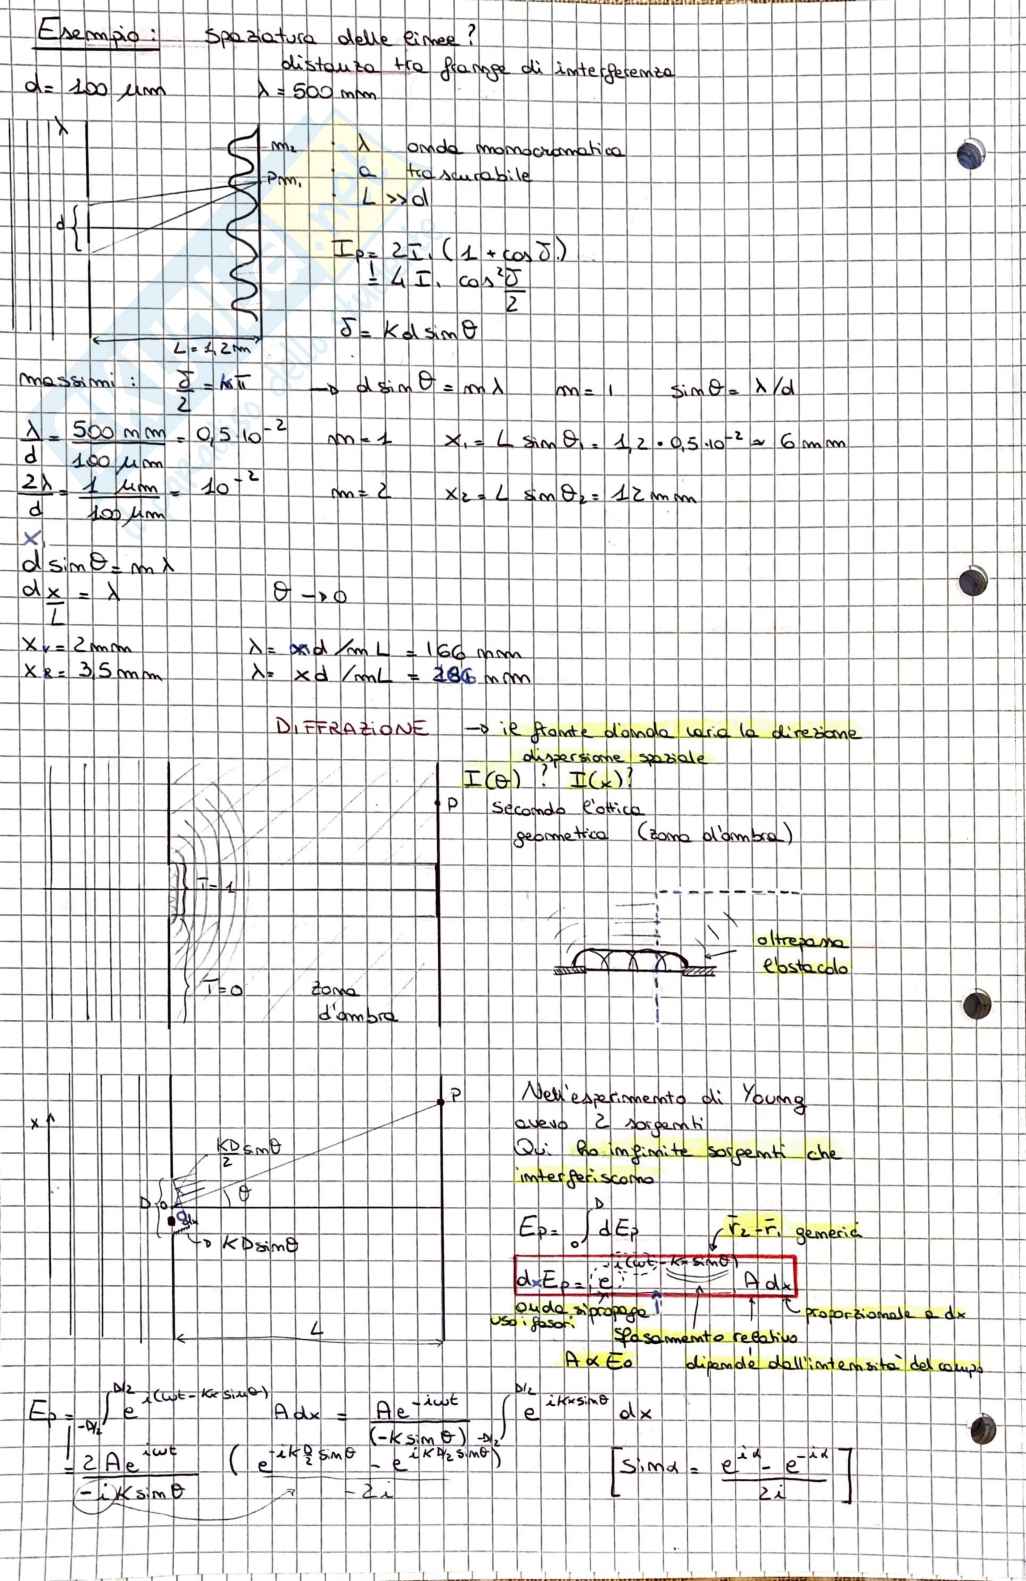 Esempio: Spaziatura delle linee?
distanza tra frange di interferenza
d= 100 μm λ = 500 nm
λ
m₂ : λ onda monocromatica
Pm₁ : a trascurabile
: L >> d
d{
I_P = 2I₁ (1 + cos δ)
= 4 I₁ cos² δ/2
L = 1,2 m
δ = K d sin θ
massimi : δ/2 = kπ → d sin θ = m λ m = 1 sin θ = λ/d
λ/d = 500 nm / 100 μm = 0,5·10⁻² m = 1 x₁ = L sin θ₁ = 1,2 • 0,5·10⁻² ≈ 6 mm
2λ/d = 1 μm / 100 μm = 10⁻² m = 2 x₂ = L sin θ₂ = 12 mm
x₁
d sin θ = m λ
d x/L = λ θ → 0
x_v = 2 mm λ = xd /mL = 166 nm
x_R = 3,5 mm λ = xd /mL = 286 nm
DIFFRAZIONE → il fronte d'onda varia la direzione
dispersione spaziale
I(θ) ? I(x)?
P secondo l'ottica
geometrica (zona d'ombra)
T=1
oltrepassa
l'ostacolo
T=0 zona
d'ombra
x P
Nell'esperimento di Young
avevo 2 sorgenti
Qui ho infinite sorgenti che
interferiscono
KD/2 sin θ
D 0 θ
dx
→ KD sin θ
E_P = ∫₀^D dE_P r̄₂ - r̄₁ generica
dxE_P = e^{-i(ωt - Kx sin θ)} A dx
onda si propaga
uso i fasori
proporzionale a dx
sfasamento relativo
L
A ∝ E₀ dipende dall'intensità del campo
E_P = ∫_{-D/2}^{D/2} e^{i(ωt - Kx sin θ)} A dx = Ae^{-iωt}/(-K sin θ) ∫_{-D/2}^{D/2} e^{iKx sin θ} dx
= 2Ae^{iωt}/(-iK sin θ) (e^{-iK D/2 sin θ} - e^{iK D/2 sin θ})/(-2i) [sin α = (e^{iα} - e^{-iα})/2i]